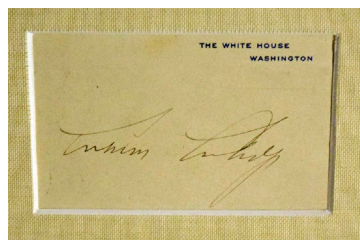 THE WHITE HOUSE
WASHINGTON
Calvin Coolidge